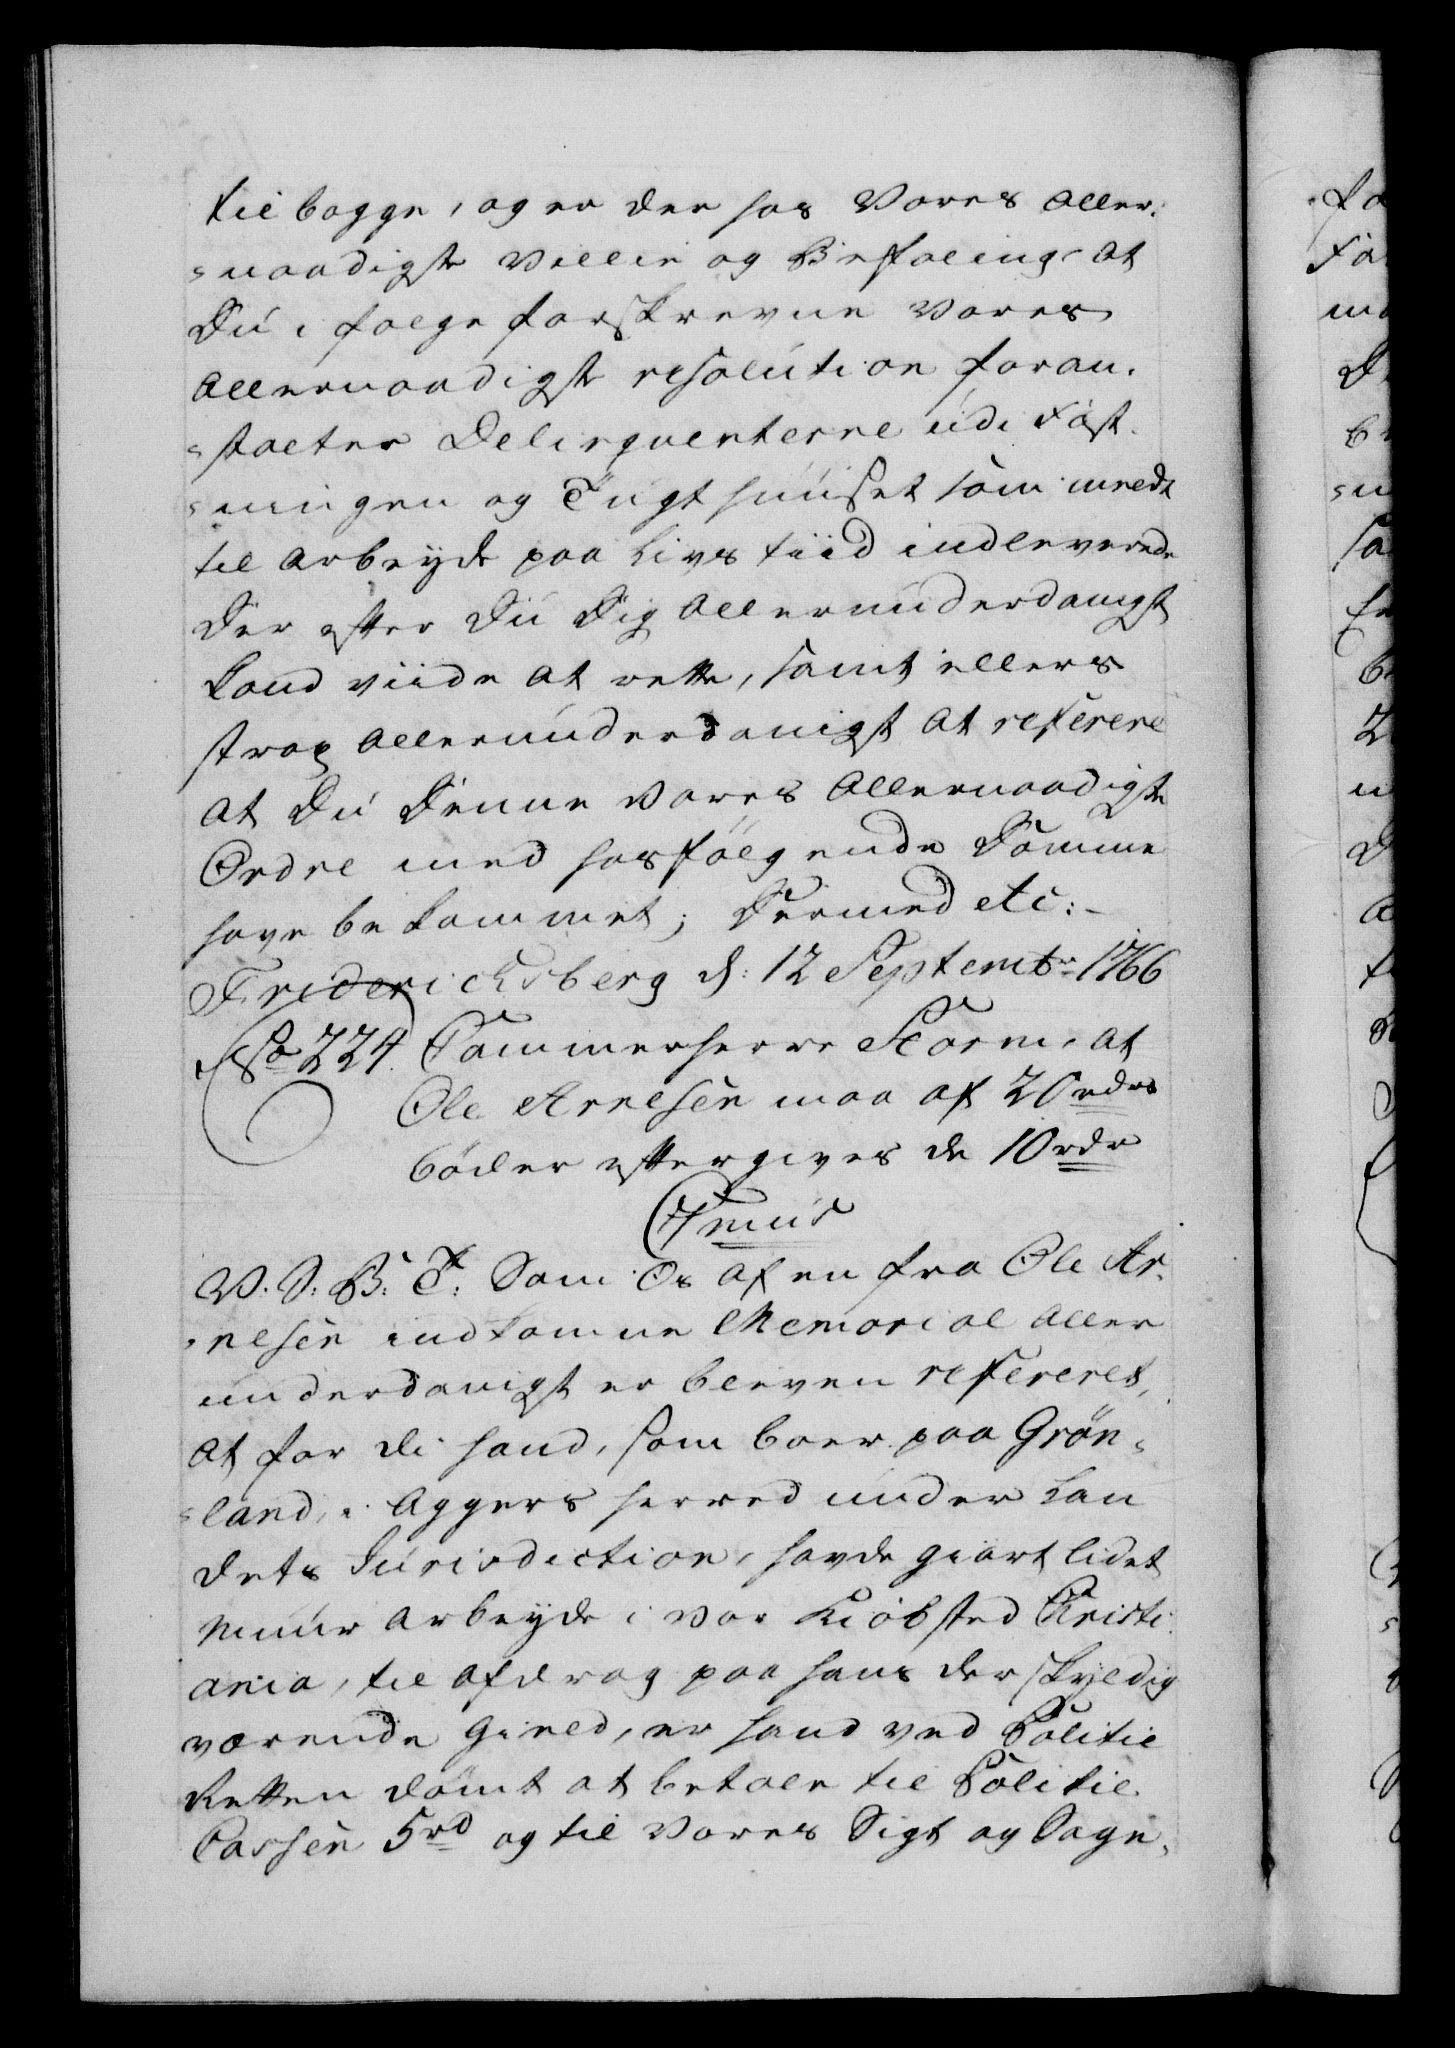 tilbagge, og er der hos Vores Aller¬
naadigste Villie og Befaling at
Du i folge forskrevne Vores
Allernaadigste resolution foran¬
stalter Delinqventerne udi Fæst¬
ningen og Tugthuuset som meedt
til Arbeyde paa Livs tiid indleverede
Der efter Du Dig Allerunderdanigst
kand viide at rette, samt ellers
strax Allerunderdanigst at referere
at Du Denne Vores Allernaadigste
Ordre med hosfölgende Domme
have bekommet; Dermed etc:
Friderichsberg d: 12 Septembr 1766
No 224. Cammerherre Storm, at
Ole Arnesen maa af 20 rdrs
böder eftergives de 10 rdr
V. S: B: T: Som Os af en fra Ole Ar¬
nesen indkomne Memorial Aller
underdanigst er bleven refereret,
at for di hand, som boer paa Grön¬
land, i Aggers herred under Lan
dets Jurisdiction, havde giort lidet
Muur Arbeyde i vor Kiöbsted Christi
ania, til Afdrag paa hans der skyldig
værende Gield, er hand ved Politie
Retten dömt at betale til Politie
Cassen 5 rd og til Vores Sigt og Sage¬